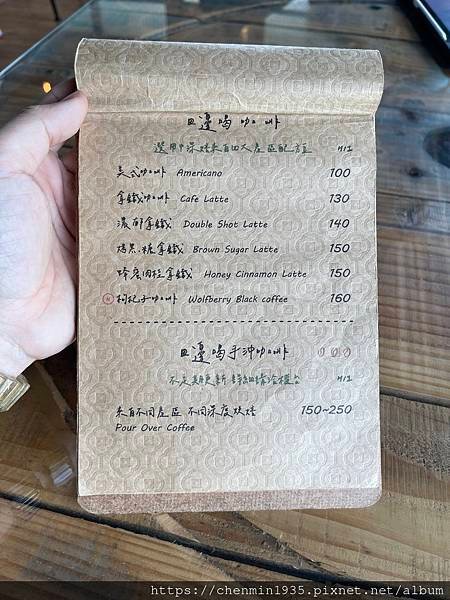 四邊喝咖啡
選用中深焙來自四大產區配方豆 H/I
美式咖啡 Americano 100
拿鐵咖啡 Cafe Latte 130
濃郁拿鐵 Double Shot Latte 140
烤黑糖拿鐵 Brown Sugar Latte 150
蜂蜜肉桂拿鐵 Honey Cinnamon Latte 150
枸杞子咖啡 Wolfberry Black coffee 160
四邊喝手沖咖啡
不定期更新 詳細請洽櫃台 H/I
來自不同產區 不同深度烘焙 150~250
Pour Over Coffee
https://chenmin1935.pixnet.net/album